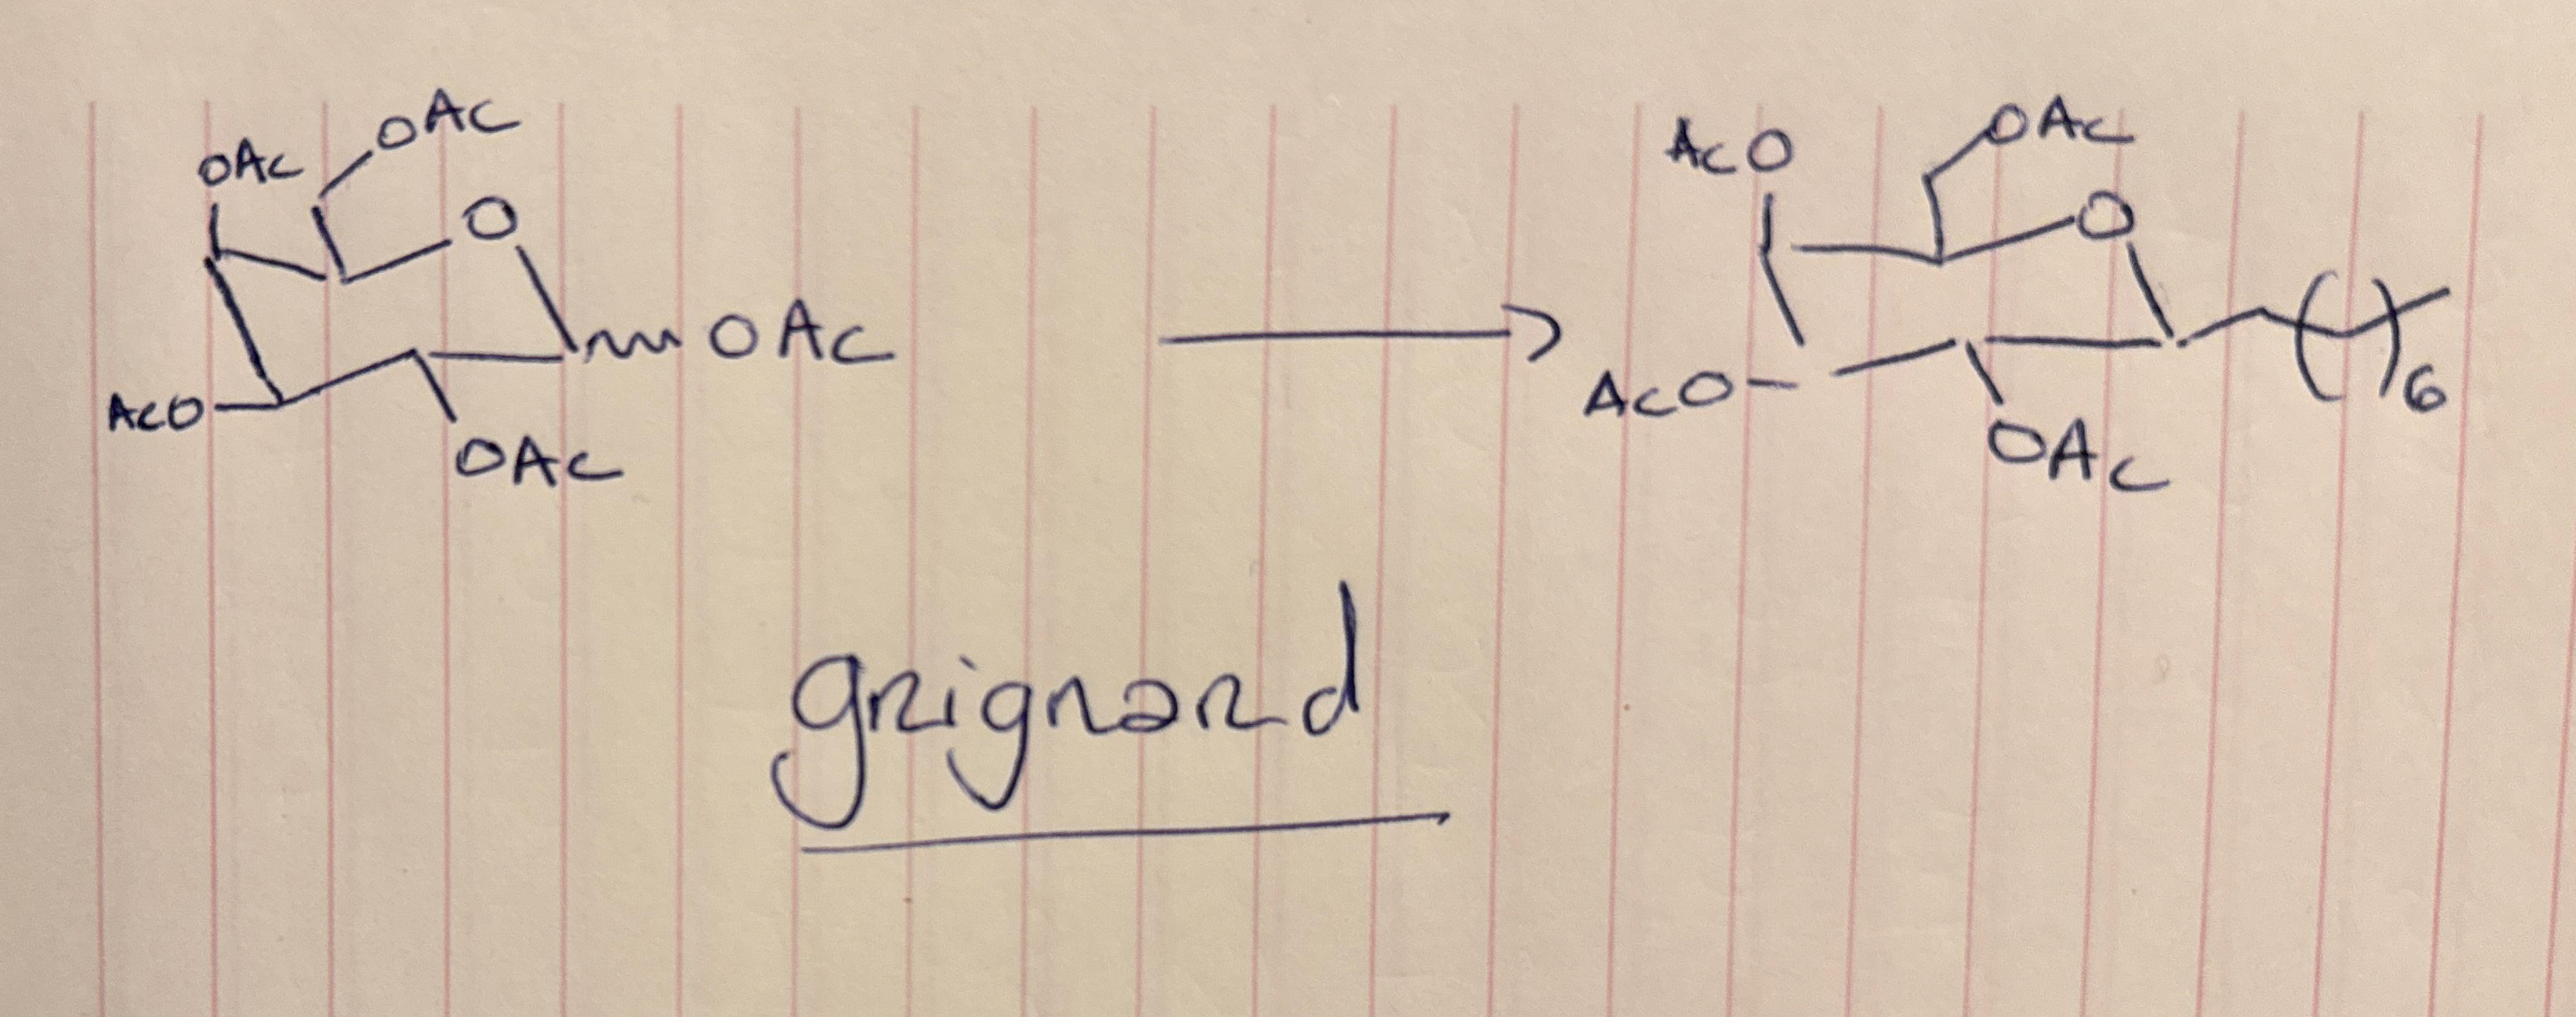 OAc
OAc
O
OAc
AcO
OAc
AcO
OAc
O
AcO
OAc
( )6
grignard